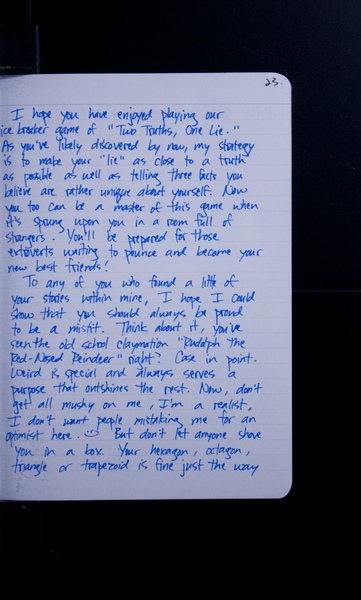 23
I hope you have enjoyed playing our
ice breaker game of "Two Truths, One Lie."
As you've likely discovered by now, my strategy
is to make your "lie" as close to a truth
as possible as well as telling three facts you
believe are rather unique about yourself. Now
you too can be a master of this game when
it's sprung upon you in a room full of
strangers. You'll be prepared for those
extroverts waiting to pounce and become your
new best friends!
To any of you who found a little of
your stories within mine, I hope I could
show that you should always be proud
to be a misfit. Think about it, you've
seen the old school claymation "Rudolph the
Red-Nosed Reindeer" right? Case in point.
Weird is special and always serves a
purpose that outshines the rest. Now, don't
get all mushy on me, I'm a realist,
I don't want people mistaking me for an
optimist here. But don't let anyone shove
you in a box. Your hexagon, octagon,
triangle or trapezoid is fine just the way